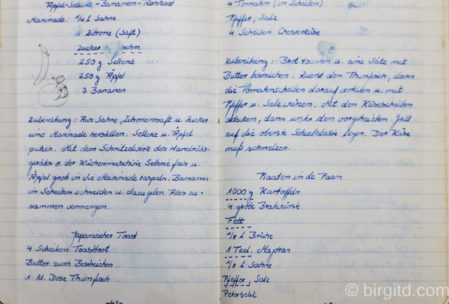 Äpfel-Sellerie-Bananen-Rohkost
Marinade: 1/4 l Sahne
1 Zitrone (Saft)
Zucker
250 g Sellerie
250 g Äpfel
3 Bananen
Zubereitung: Aus Sahne, Zitronensaft u. Zucker
eine Marinade herstellen. Sellerie u. Äpfel
putzen. Mit dem Schnitzelwerk des Handrühr-
gerätes o. der Küchenmaschine Sellerie fein u.
Äpfel grob in die Marinade raspeln. Bananen
in Scheiben schneiden u. dazugeben. Alles zu-
sammen vermengen.
Japanischer Toast
4 Scheiben Toastbrot
Butter zum Bestreichen
1 kl. Dose Thunfisch
4 Tomaten (in Scheiben)
Pfeffer, Salz
4 Scheiben Chesterkäse
Zubereitung: Brot rösten u. eine Seite mit
Butter bestreichen. Zuerst den Thunfisch, dann
die Tomatenscheiben darauf verteilen u. mit
Pfeffer u. Salz würzen. Mit den Käsescheiben
abdecken, dann unter den vorgeheizten Grill
auf die oberste Schiebeleiste legen. Der Käse
muß schmelzen.
1000 g Kartoffeln
4 große Bratwürste
Fett
1/8 l Brühe
1 Teel. Majoran
1/8 l Sahne
Pfeffer, Salz
Petersilie
© birgitd.com